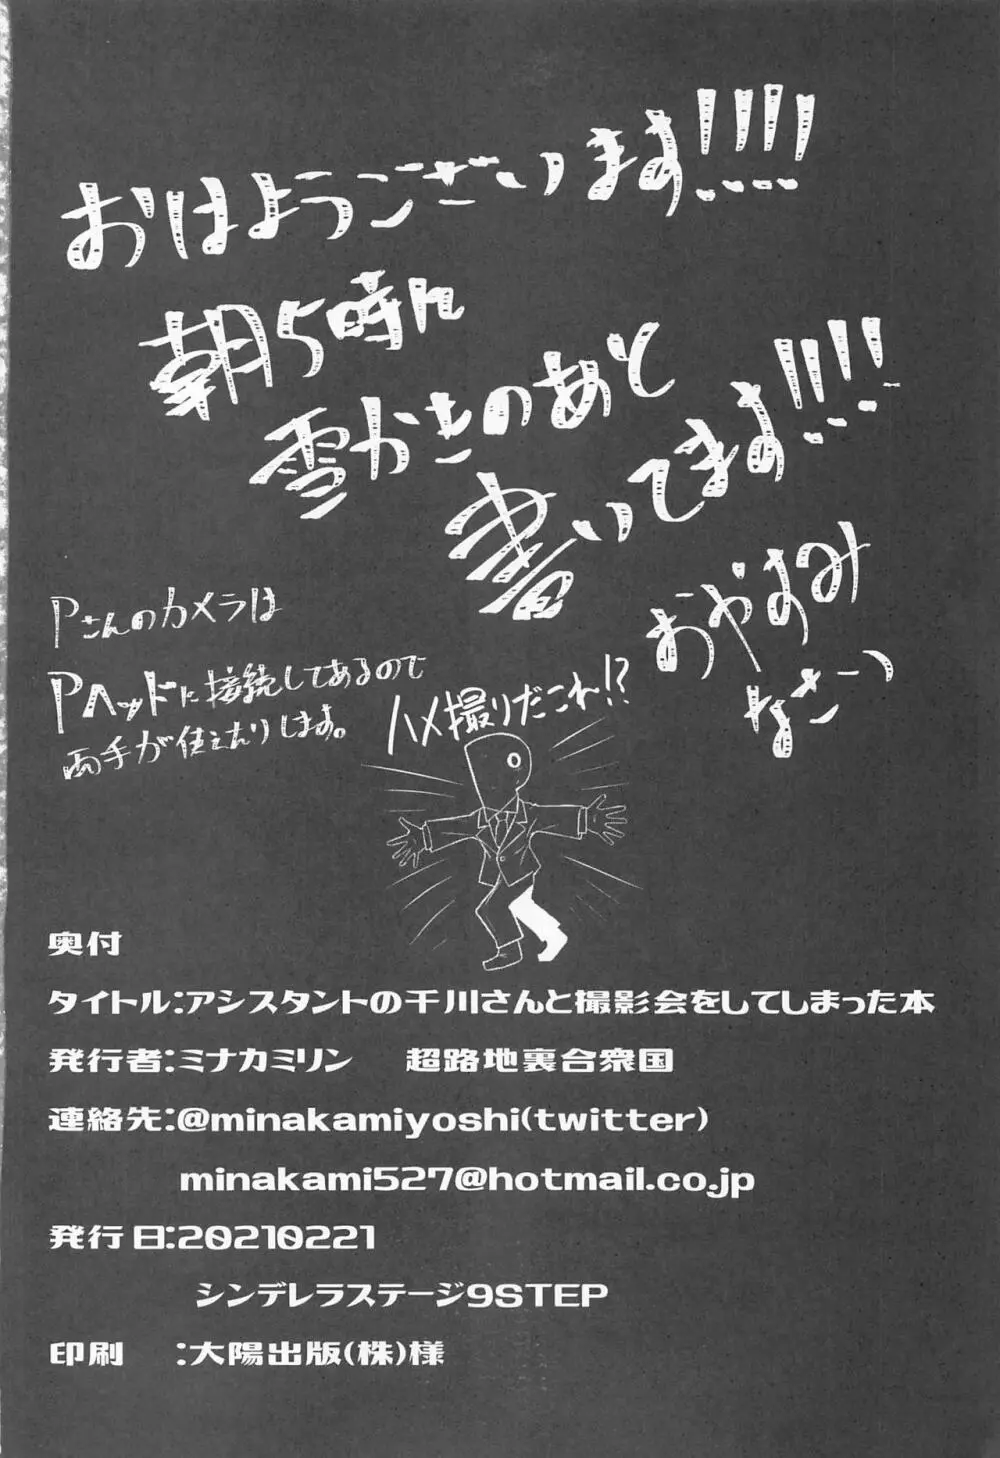 おはようございます!!!!
朝5時に
雪かきのあと
書いてます!!!!
おやすみ
なさーい
Pさんのカメラは
Pヘッドに接続してあるので
両手が使えたりします。
ハメ撮りだこれ!?
奥付
タイトル:アシスタントの千川さんと撮影会をしてしまった本
発行者:ミナカミリン 超路地裏合衆国
連絡先:@minakamiyoshi(twitter)
minakami527@hotmail.co.jp
発行日:20210221
シンデレラステージ9STEP
印刷 :大陽出版(株)様